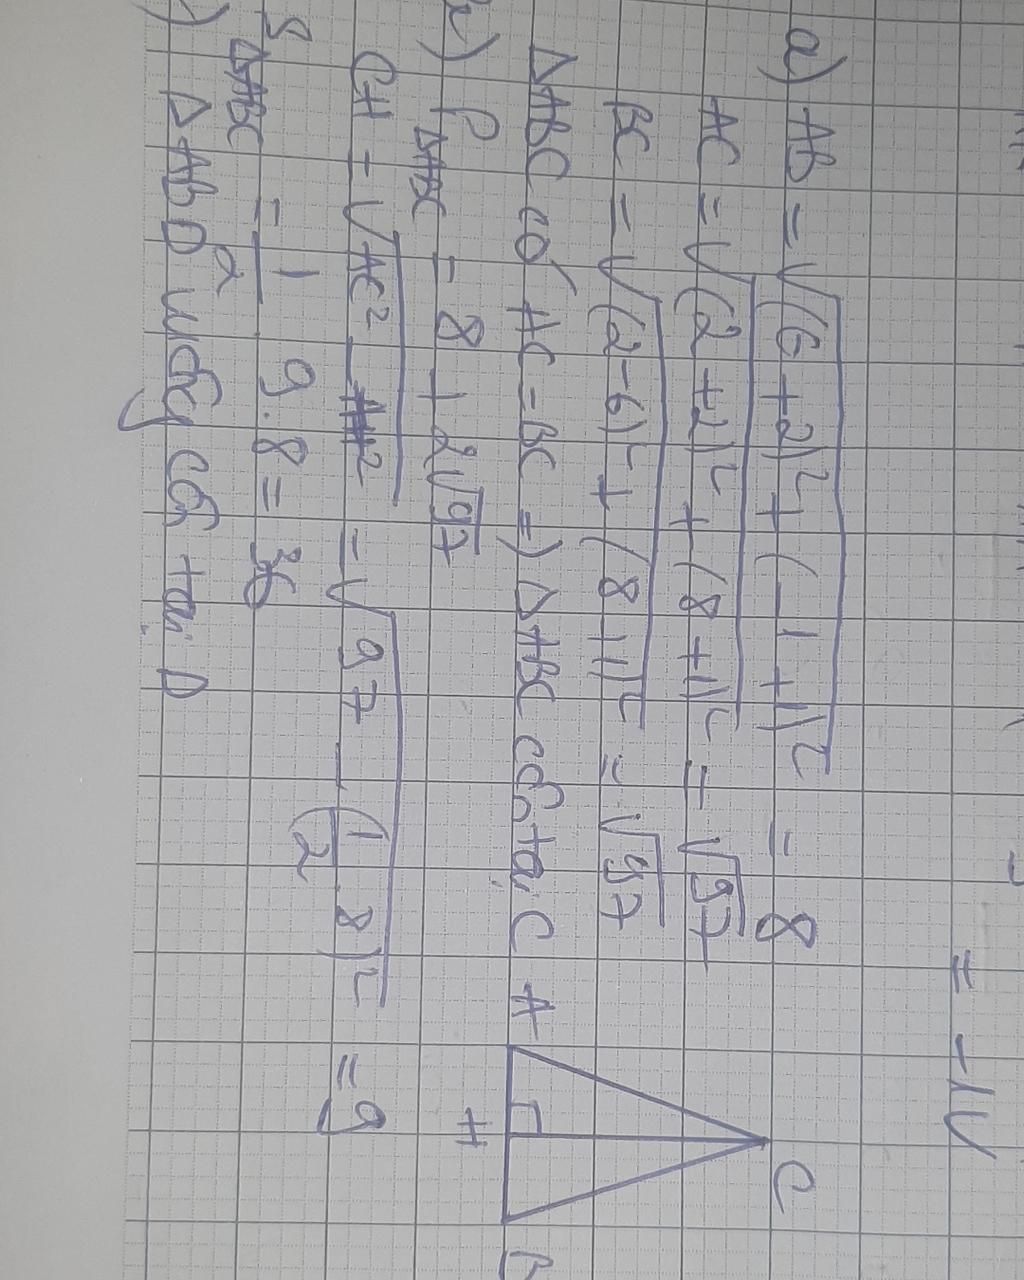 = -10
a) AB = √(6+2)² + (-1+1)² = 8
AC = √(2+2)² + (8+1)² = √97
BC = √(2-6)² + (8+1)² = √97
ΔABC có AC = BC => ΔABC cân tại C
P ΔABC = 8 + 2√97
CH = √AC² - AH² = √97 - (1/2 . 8)² = 9
S ΔABC = 1/2 . 9 . 8 = 36
ΔABD vuông cân tại D
C
A
H
B